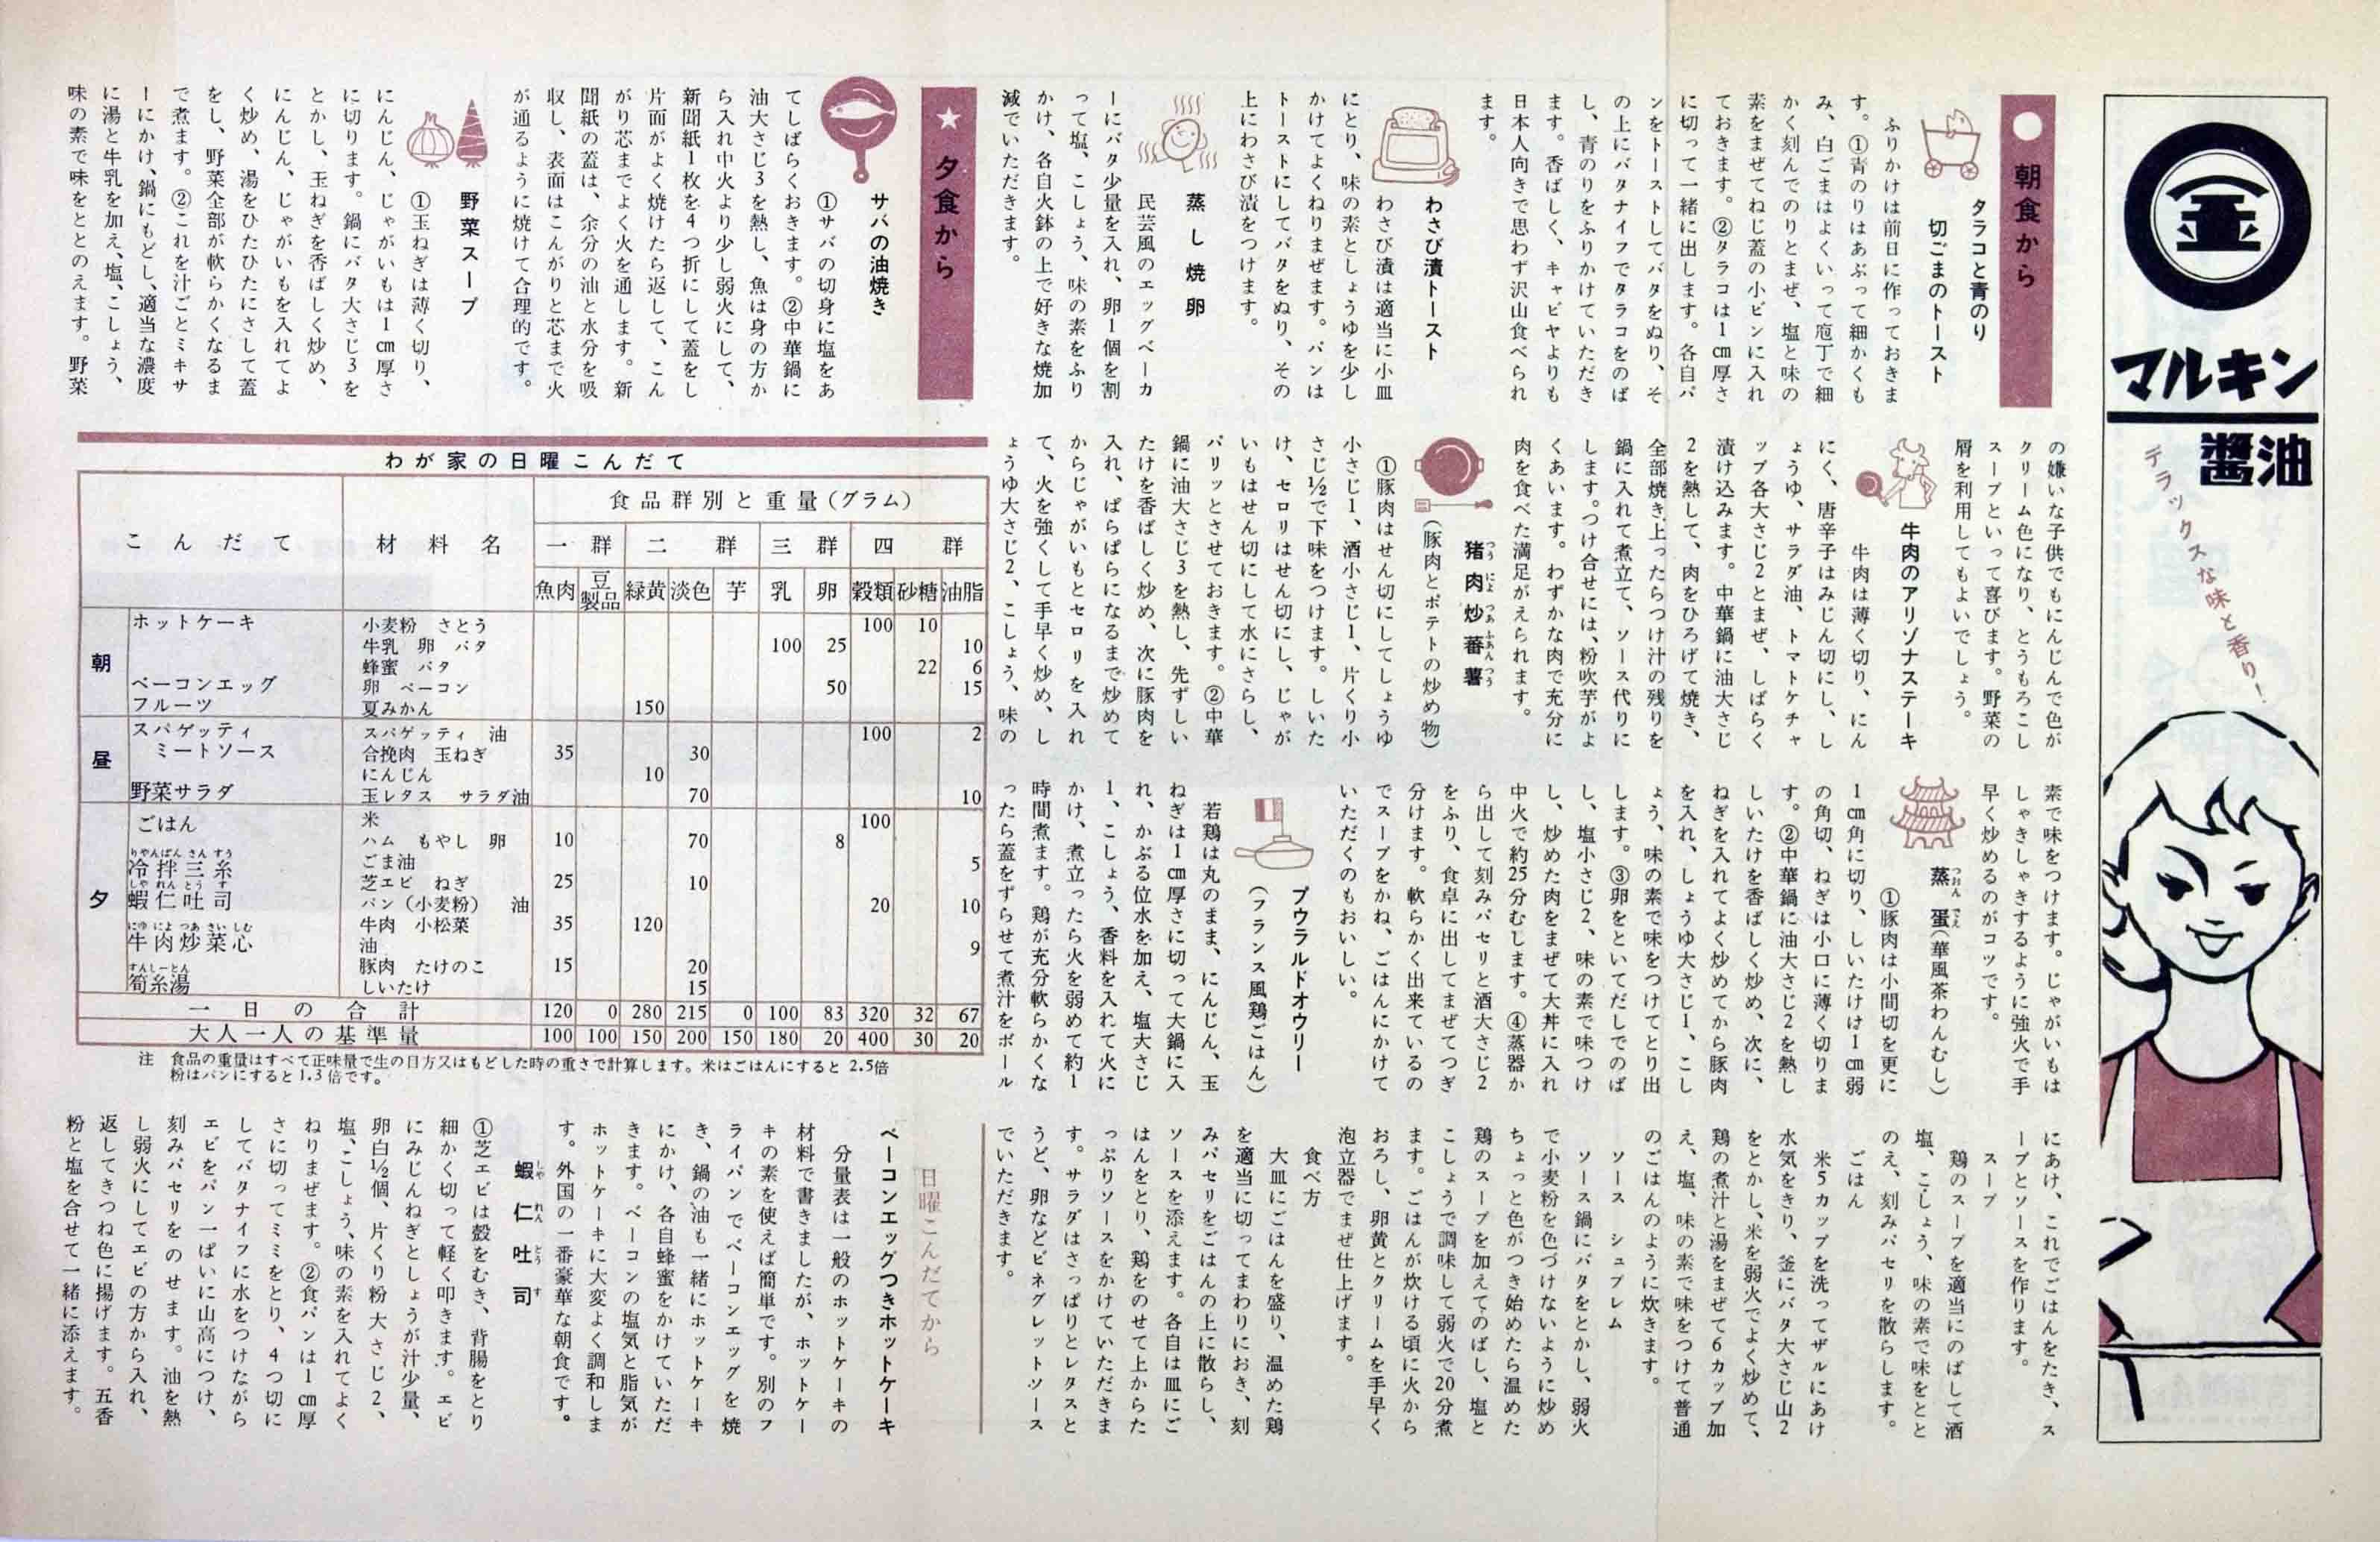 マルキン
醬油
デラックスな味と香り！
朝食から
タラコと青のり
切ごまのトースト
ふりかけは前日に作っておきま
す。①青のりはあぶって細かくも
み、白ごまはよくいって庖丁で細
かく刻んでのりとまぜ、塩と味の
素をまぜてねじ蓋の小ビンに入れ
ておきます。②タラコは1cm厚さ
に切って一緒に出します。各自パ
ンをトーストしてバタをぬり、そ
の上にバタナイフでタラコをのば
し、青のりをふりかけていただき
ます。香ばしく、キャビヤよりも
日本人向きで思わず沢山食べられ
ます。
わさび漬トースト
わさび漬は適当に小皿
にとり、味の素としょうゆを少し
かけてよくねりまぜます。パンは
トーストにしてバタをぬり、その
上にわさび漬をつけます。
蒸し焼卵
民芸風のエッグベーカ
ーにバタ少量を入れ、卵1個を割
って塩、こしょう、味の素をふり
かけ、各自火鉢の上で好きな焼加
減でいただきます。
★夕食から
サバの油焼き
①サバの切身に塩をあ
てしばらくおきます。②中華鍋に
油大さじ3を熱し、魚は身の方か
ら入れ中火より少し弱火にして、
新聞紙1枚を4つ折にして蓋をし
片面がよく焼けたら返して、こん
がり芯までよく火を通します。新
聞紙の蓋は、余分の油と水分を吸
収し、表面はこんがりと芯まで火
が通るように焼けて合理的です。
野菜スープ
①玉ねぎは薄く切り、
にんじん、じゃがいもは1cm厚さ
に切ります。鍋にバタ大さじ3を
とかし、玉ねぎを香ばしく炒め、
にんじん、じゃがいもを入れてよ
く炒め、湯をひたひたにさして蓋
をし、野菜全部が軟らかくなるま
で煮ます。②これを汁ごとミキサ
ーにかけ、鍋にもどし、適当な濃度
に湯と牛乳を加え、塩、こしょう、
味の素で味をととのえます。野菜
の嫌いな子供でもにんじんで色が
クリーム色になり、とうもろこし
スープといって喜びます。野菜の
屑を利用してもよいでしょう。
牛肉のアリゾナステーキ
牛肉は薄く切り、にん
にく、唐辛子はみじん切にし、し
ょうゆ、サラダ油、トマトケチャ
ップ各大さじ2とまぜ、しばらく
漬け込みます。中華鍋に油大さじ
2を熱して、肉をひろげて焼き、
全部焼き上ったらつけ汁の残りを
鍋に入れて煮立て、ソース代りに
します。つけ合せには、粉吹芋がよ
くあいます。わずかな肉で充分に
肉を食べた満足がえられます。
猪肉炒蕃薯
つうによつあふあんつう
（豚肉とポテトの炒め物）
①豚肉はせん切にしてしょうゆ
小さじ1、酒小さじ1、片くり小
さじ½で下味をつけます。しいた
け、セロリはせん切にし、じゃが
いもはせん切にして水にさらし、
パリッとさせておきます。②中華
鍋に油大さじ3を熱し、先ずしい
たけを香ばしく炒め、次に豚肉を
入れ、ぱらぱらになるまで炒めて
からじゃがいもとセロリを入れ
て、火を強くして手早く炒め、し
ょうゆ大さじ2、こしょう、味の
素で味をつけます。じゃがいもは
しゃきしゃきするように強火で手
早く炒めるのがコツです。
蒸蛋（華風茶わんむし）
①豚肉は小間切を更に
1cm角に切り、しいたけは1cm弱
の角切、ねぎは小口に薄く切りま
す。②中華鍋に油大さじ2を熱し
しいたけを香ばしく炒め、次に、
ねぎを入れてよく炒めてから豚肉
を入れ、しょうゆ大さじ1、こし
ょう、味の素で味をつけてとり出
します。③卵をといてだしでのば
し、塩小さじ2、味の素で味つけ
し、炒めた肉をまぜて大丼に入れ
中火で約25分むします。④蒸器か
ら出して刻みパセリと酒大さじ2
をふり、食卓に出してまぜてつぎ
分けます。軟らかく出来ているの
でスープをかね、ごはんにかけて
いただくのもおいしい。
プウラルドオウリー
（フランス風鶏ごはん）
若鶏は丸のまま、にんじん、玉
ねぎは1cm厚さに切って大鍋に入
れ、かぶる位水を加え、塩大さじ
1、こしょう、香料を入れて火に
かけ、煮立ったら火を弱めて約1
時間煮ます。鶏が充分軟らかくな
ったら蓋をずらせて煮汁をボール
にあけ、これでごはんをたき、ス
ープとソースを作ります。
スープ
鶏のスープを適当にのばして酒
塩、こしょう、味の素で味をとと
のえ、刻みパセリを散らします。
ごはん
米5カップを洗ってザルにあけ
水気をきり、釜にバタ大さじ山2
をとかし、米を弱火でよく炒めて、
鶏の煮汁と湯をまぜて6カップ加
え、塩、味の素で味をつけて普通
のごはんのように炊きます。
ソース シュプレム
ソース鍋にバタをとかし、弱火
で小麦粉を色づけないように炒め
ちょっと色がつき始めたら温めた
鶏のスープを加えてのばし、塩と
こしょうで調味して弱火で20分煮
ます。ごはんが炊ける頃に火から
おろし、卵黄とクリームを手早く
泡立器でまぜ仕上げます。
食べ方
大皿にごはんを盛り、温めた鶏
を適当に切ってまわりにおき、刻
みパセリをごはんの上に散らし、
ソースを添えます。各自は皿にご
はんをとり、鶏をのせて上からた
っぷりソースをかけていただきま
す。サラダはさっぱりとレタスと
うど、卵などビネグレットソース
でいただきます。
日曜こんだてから
ベーコンエッグつきホットケーキ
分量表は一般のホットケーキの
材料で書きましたが、ホットケー
キの素を使えば簡単です。別のフ
ライパンでベーコンエッグを焼
き、鍋の油も一緒にホットケーキ
にかけ、各自蜂蜜をかけていただ
きます。ベーコンの塩気と脂気が
ホットケーキに大変よく調和しま
す。外国の一番豪華な朝食です。
蝦仁吐司
しやれんとうす
①芝エビは殻をむき、背腸をとり
細かく切って軽く叩きます。エビ
にみじんねぎとしょうが汁少量、
卵白½個、片くり粉大さじ2、
塩、こしょう、味の素を入れてよく
ねりまぜます。②食パンは1cm厚
さに切ってミミをとり、4つ切に
してバタナイフに水をつけながら
エビをパン一ぱいに山高につけ、
刻みパセリをのせます。油を熱
し弱火にしてエビの方から入れ、
返してきつね色に揚げます。五香
粉と塩を合せて一緒に添えます。
わが家の日曜こんだて
こんだて 材料名 食品群別と重量（グラム）
一群 二群 三群 四群
魚肉 豆製品 緑黄 淡色 芋 乳 卵 穀類 砂糖 油脂
朝
ホットケーキ 小麦粉 さとう 100 10
牛乳 卵 バタ 100 25 10
蜂蜜 バタ 22 6
ベーコンエッグ 卵 ベーコン 50 15
フルーツ 夏みかん 150
昼
スパゲッティ スパゲッティ 油 100 2
ミートソース 合挽肉 玉ねぎ 35 30
にんじん 10
野菜サラダ 玉レタス サラダ油 70 10
夕
ごはん 米 100
りやんばんさんすう
冷拌三糸 ハム もやし 卵 10 70 8
ごま油 5
しやれんとうす
蝦仁吐司 芝エビ ねぎ 25 10
パン（小麦粉） 油 20 10
にゆによつあさいしむ
牛肉炒菜心 牛肉 小松菜 35 120
油 9
すんしーとん
筍糸湯 豚肉 たけのこ 15 20
しいたけ 15
一日の合計 120 0 280 215 0 100 83 320 32 67
大人一人の基準量 100 100 150 200 150 180 20 400 30 20
注 食品の重量はすべて正味量で生の目方又はもどした時の重さで計算します。米はごはんにすると 2.5倍
粉はパンにすると1.3倍です。